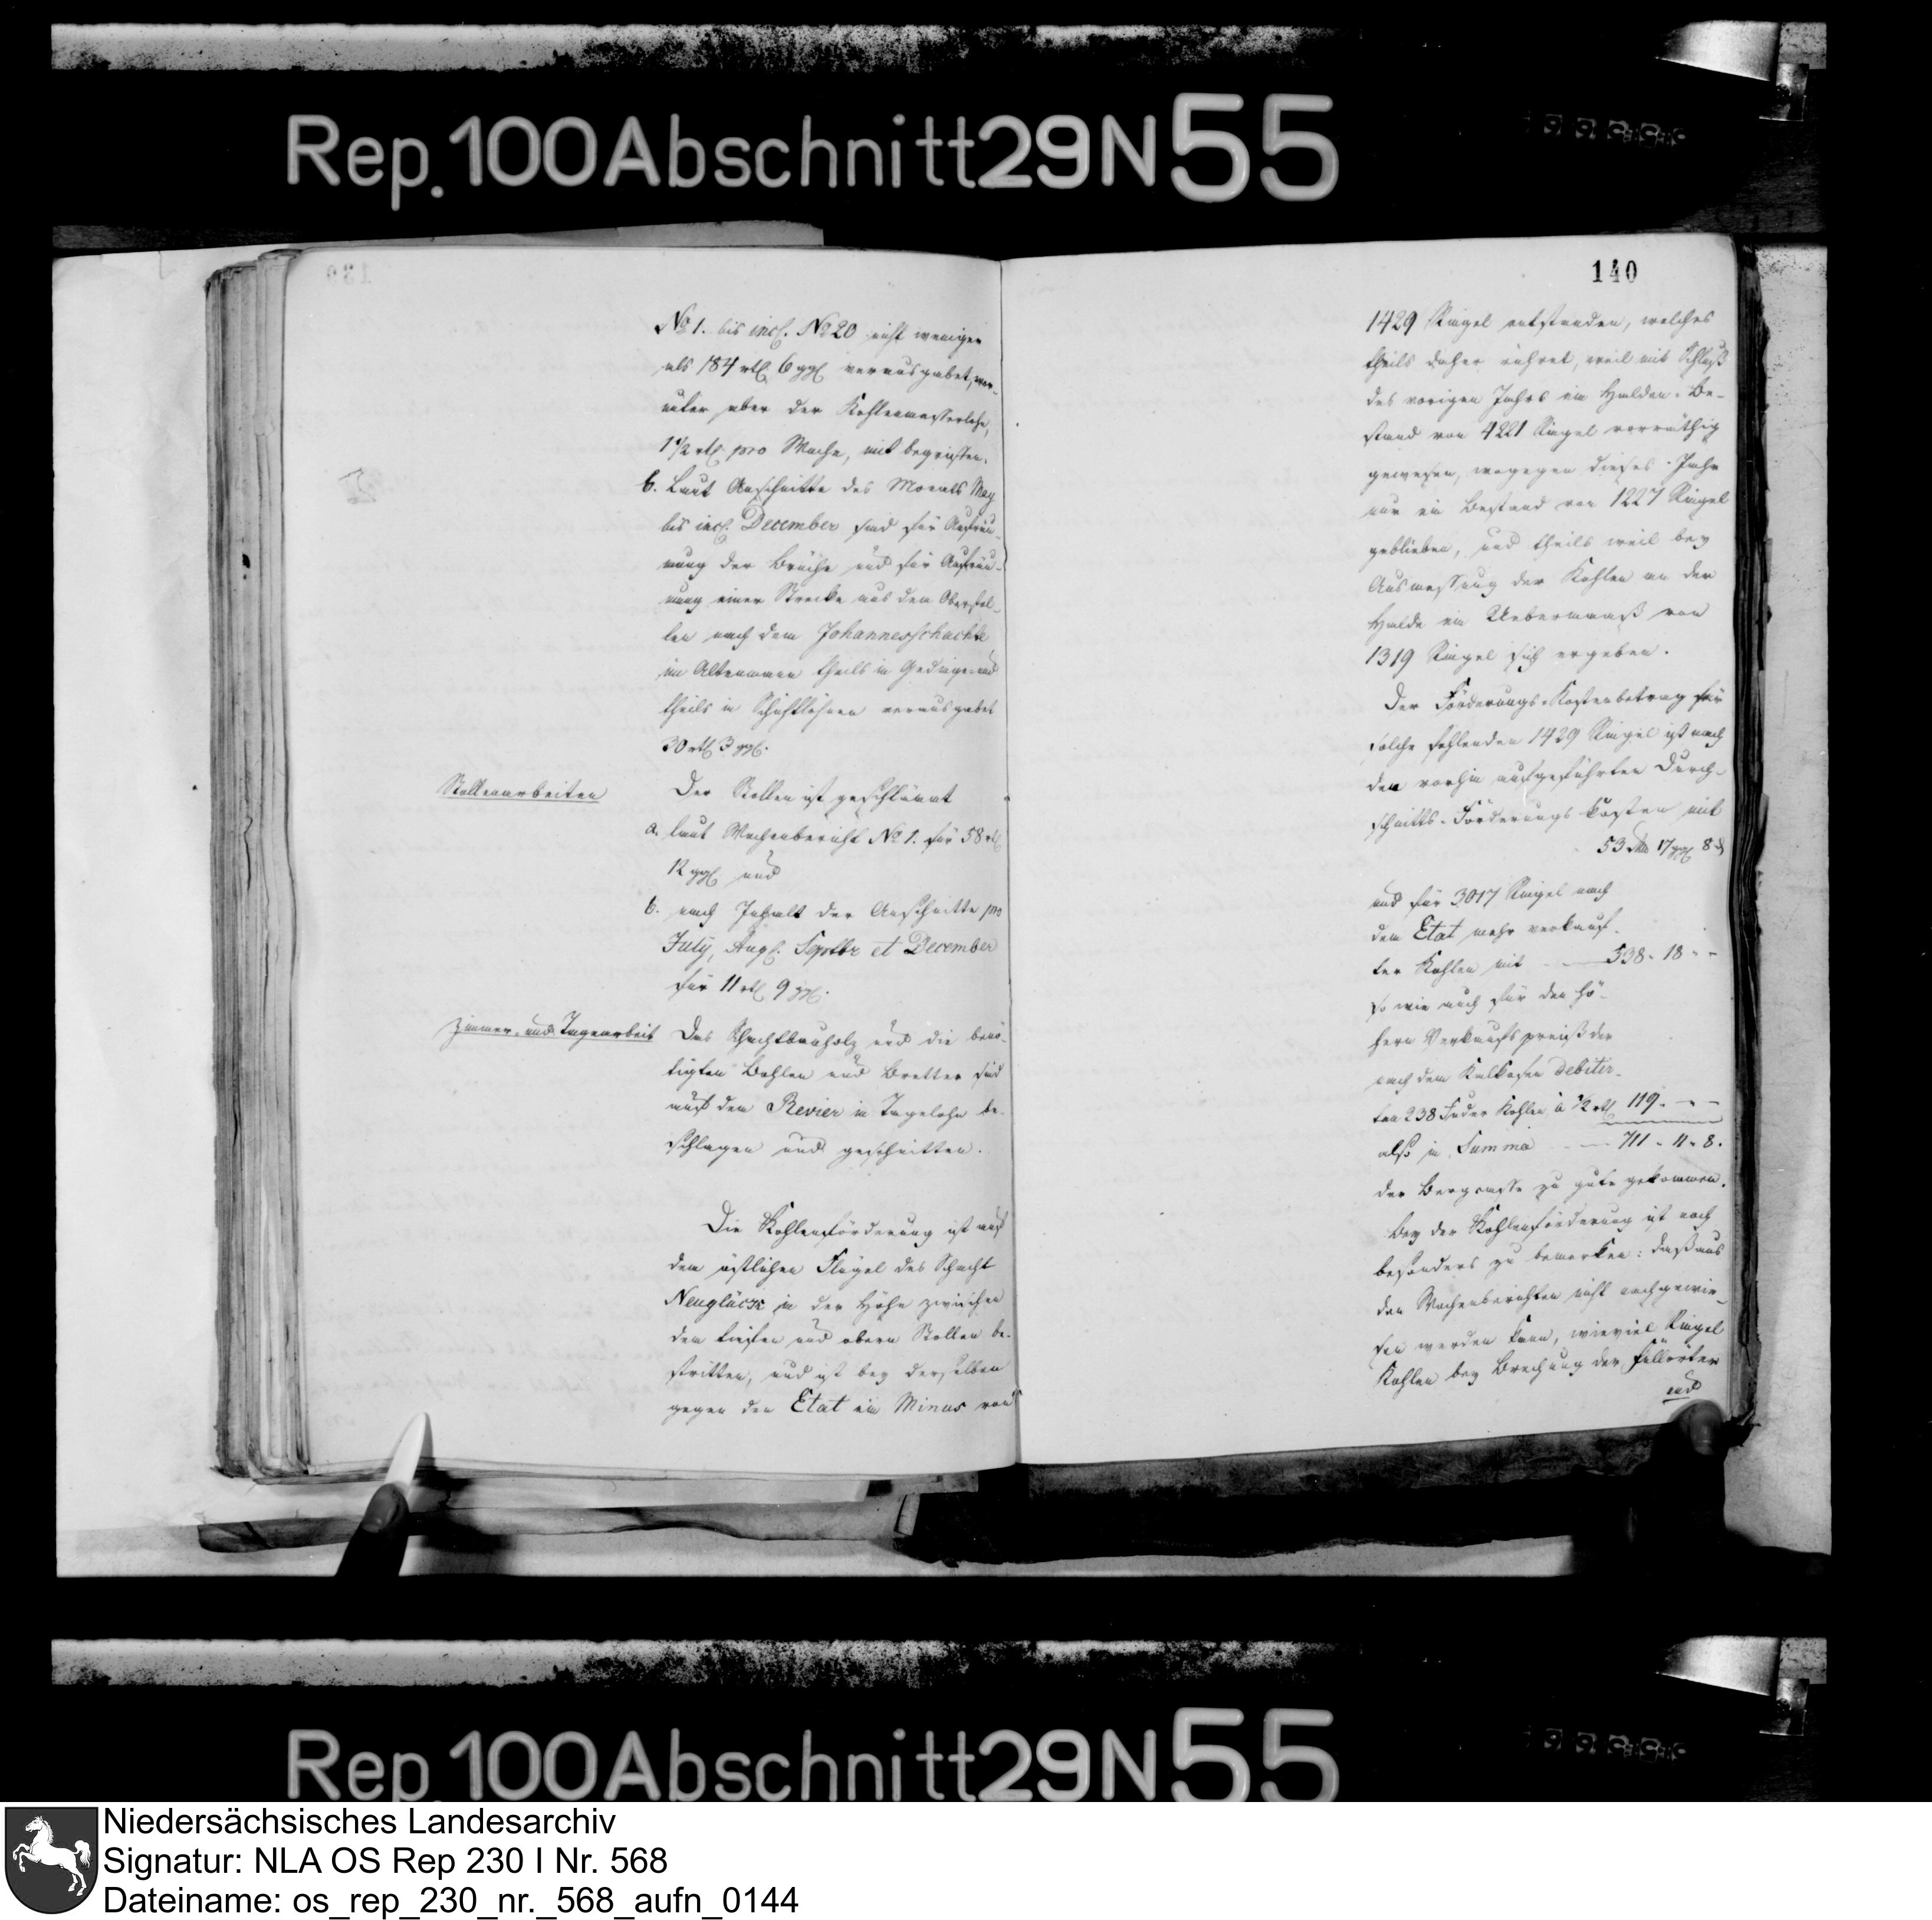 Rep. 100 Abschnitt 29 N 55
No 1. bis incl. No 20 nicht weniger
als 184 rtl 6 ggl verausgabet, wor-
unter aber der Kohlenmesserlohn,
1 1/2 rtl. pro Woche, mit begriffen.
b. Laut Anschnitte des Monats May
bis incl. December sind für Aufräu-
mung der Brüche und für Aufräu-
mung einer Strecke aus dem Oberstol-
len nach dem Johannesschachte
im Altenmann theils in Gedinge und
theils in Schichtlöhnen verausgabet
30 rtl 3 ggl.
Stollenarbeiten
Der Stollen ist geschlämmt
a. laut Wochenbericht No 1. für 58 rtl
12 ggl und
b. nach Inhalt der Anschnitte pro
July, Aug. Septbr et December
für 11 rtl 9 ggl.
Zimmer- und Tagearbeit
Das Schachtbauholz und die benö-
tigten Bohlen und Bretter sind
auf dem Revier in Tagelohn be-
schlagen und geschnitten.
Die Kohlenförderung ist auf
dem östlichen Flügel des Schacht
Neuglück in der Höhe zwischen
dem tiefen und obern Stollen be-
stritten, und ist bey derselben
gegen den Etat ein Minus von
140
1429 Ringel entstanden, welches
theils daher rühret, weil mit Schluß
des vorigen Jahrs ein Halden-Be-
stand von 4221 Ringel vorräthig
gewesen, wogegen dieses Jahr
nur ein Bestand von 1227 Ringel
geblieben, und theils weil bey
Ausmessung der Kohlen an der
Halde ein Uebermaaß von
1319 Ringel sich ergeben.
Der Förderungs-Kostenbetrag für
solche fehlenden 1429 Ringel ist nach
den vorhin aufgeführten Durch-
schnitts-Förderungs Kosten mit
53 rtl 17 ggl 8 d
und für 3017 Ringel nach
dem Etat mehr verkauf-
ter Kohlen mit 538 - 18 - -
so wie auch für den hö-
hern Verkaufspreiß der
nach dem Kalkofen debitir-
ten 238 Fuder Kohlen à 1/2 rtl 119 - - -
also in Summa 711 - 11 - 8.
der Bergcasse zu gute gekommen.
Bey der Kohlenförderung ist noch
besonders zu bemerken: daß aus
den Wochenberichten nicht nachgewie-
sen werden kann, wieviel Ringel
Kohlen bey Brechung der Füllörter
und
Rep. 100 Abschnitt 29 N 55
Niedersächsisches Landesarchiv
Signatur: NLA OS Rep 230 I Nr. 568
Dateiname: os_rep_230_nr._568_aufn_0144